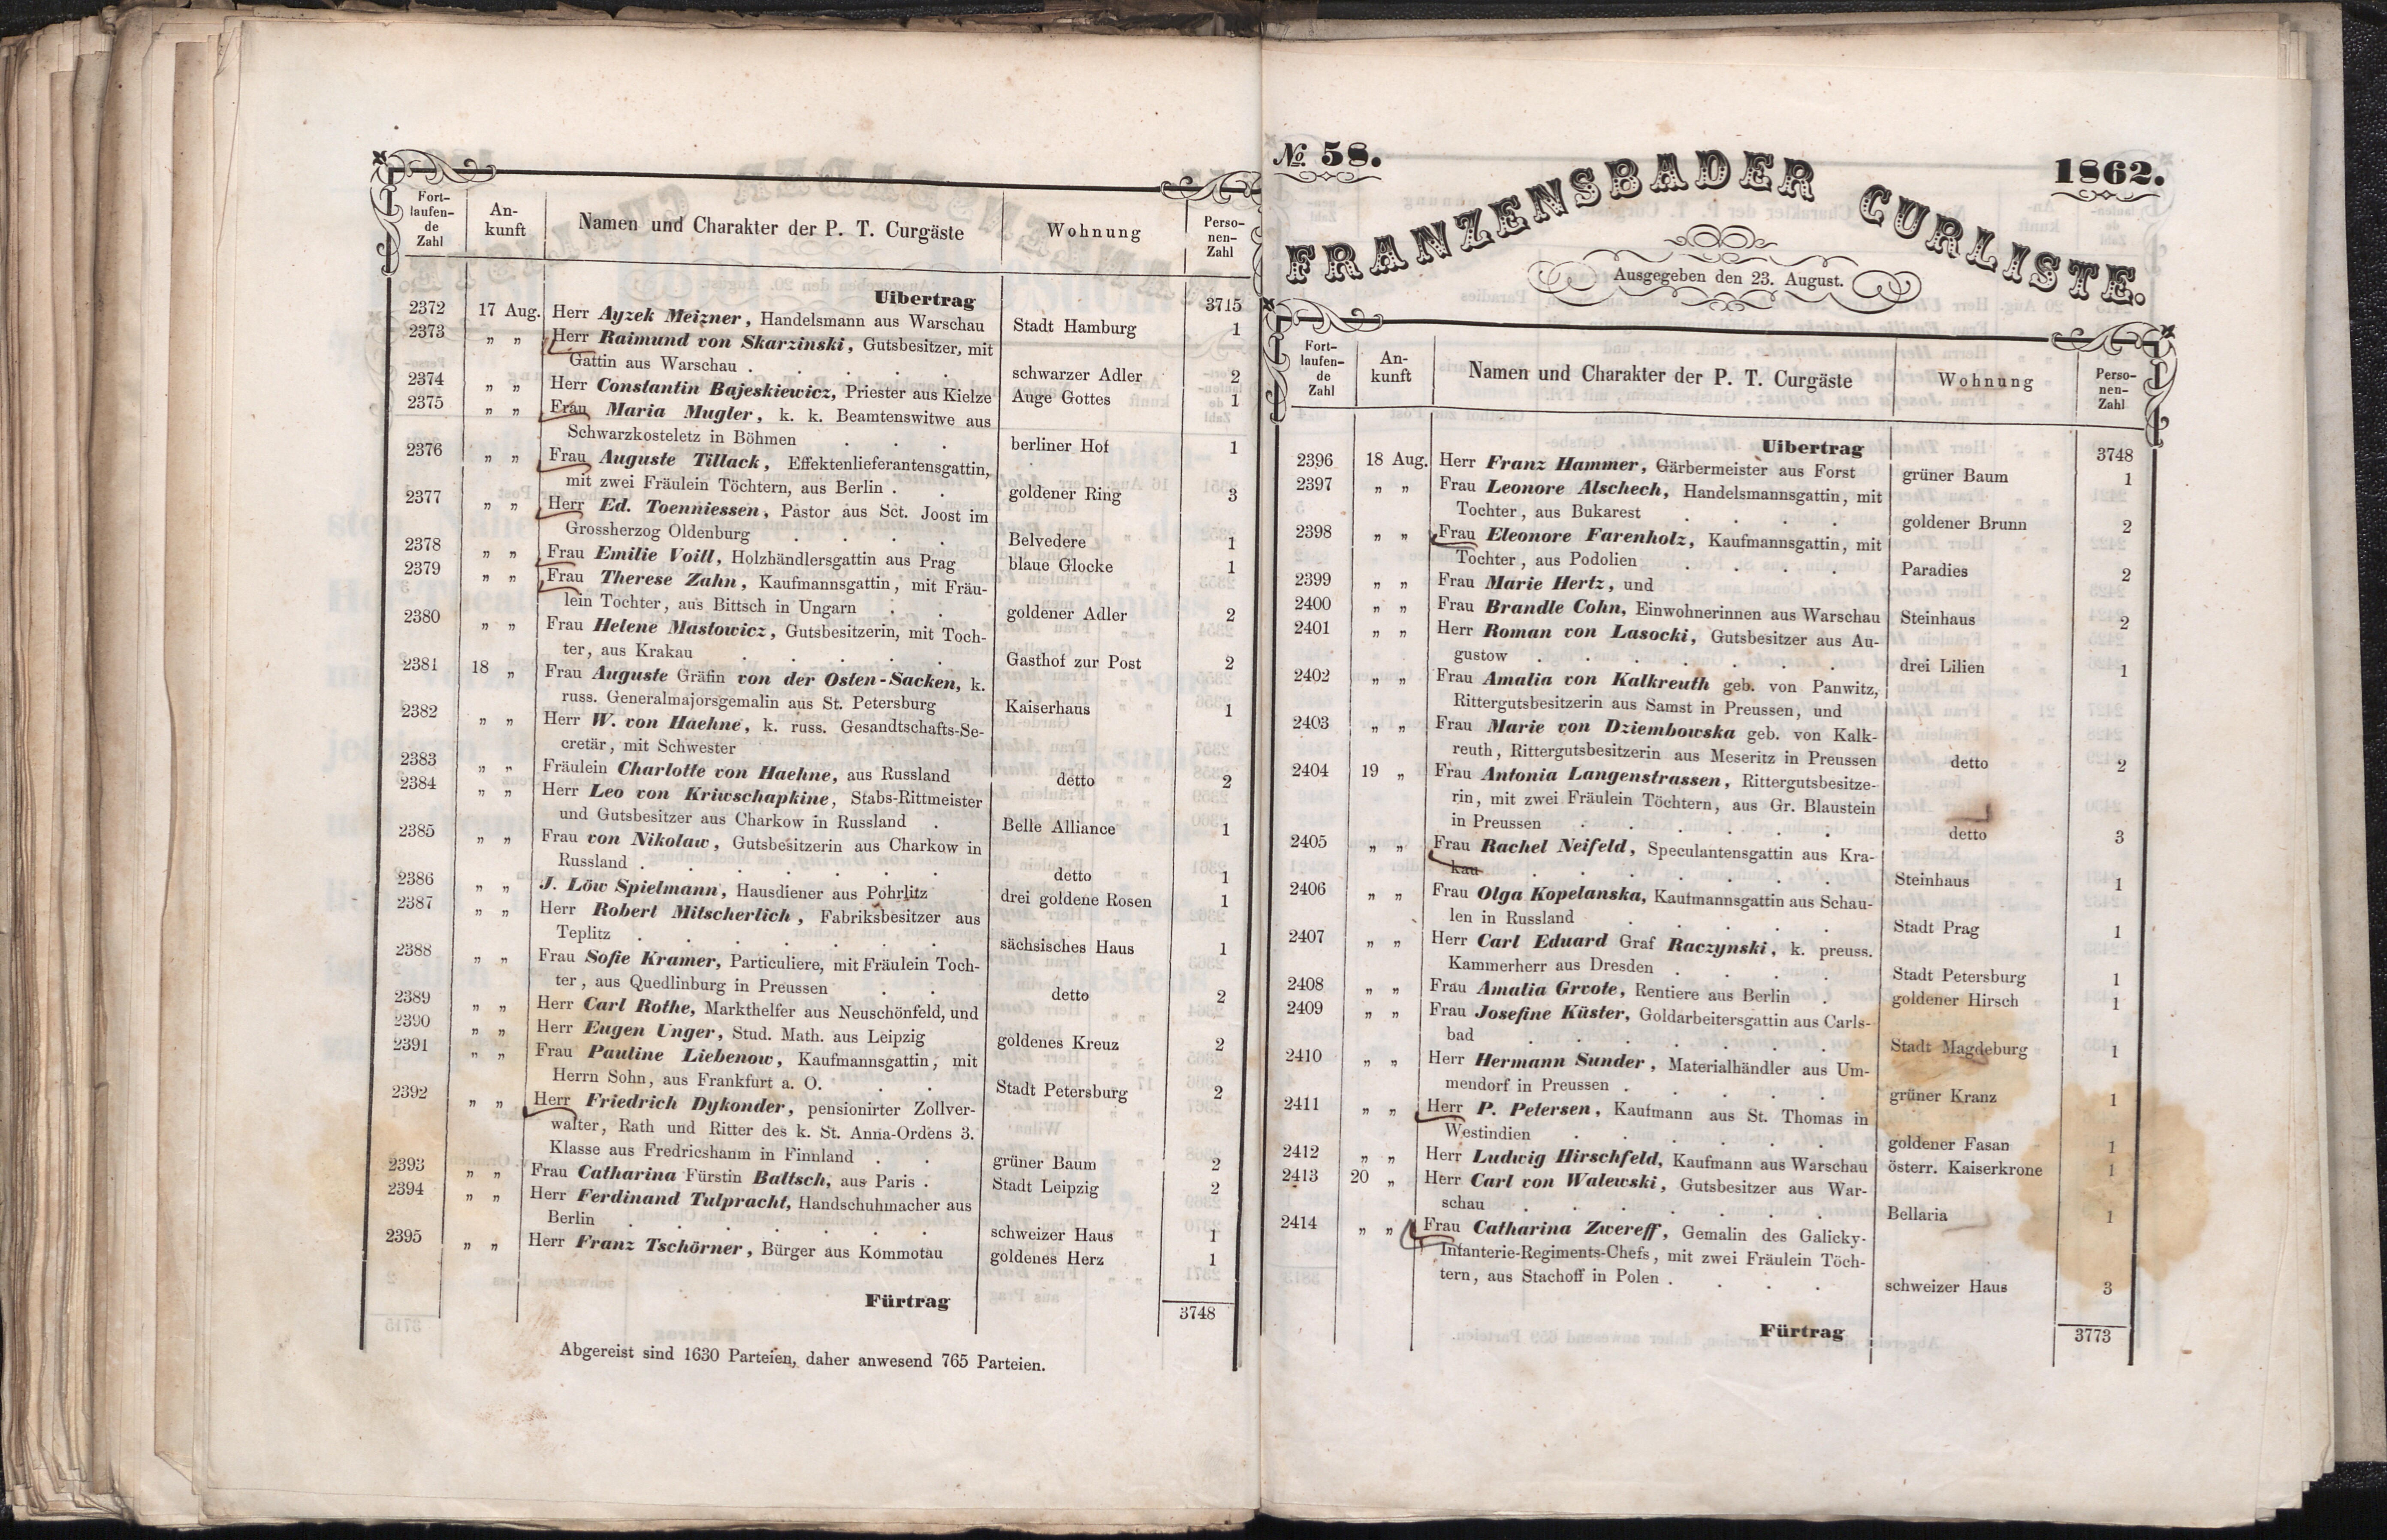 Fort-
laufen-
de
Zahl
An-
kunft
Namen und Charakter der P. T. Curgäste
Wohnung
Perso-
nen-
Zahl
Uibertrag 3715
2372 17 Aug. Herr Ayzek Meizner, Handelsmann aus Warschau Stadt Hamburg 1
2373 „ „ Herr Raimund von Skarzinski, Gutsbesitzer, mit
Gattin aus Warschau . . . . . schwarzer Adler 2
2374 „ „ Herr Constantin Bajeskiewicz, Priester aus Kielze Auge Gottes 1
2375 „ „ Frau Maria Mugler, k. k. Beamtenswitwe aus
Schwarzkosteletz in Böhmen . . . berliner Hof 1
2376 „ „ Frau Auguste Tillack, Effektenlieferantensgattin,
mit zwei Fräulein Töchtern, aus Berlin . . goldener Ring 3
2377 „ „ Herr Ed. Toenniessen, Pastor aus Sct. Joost im
Grossherzog Oldenburg . . . . Belvedere 1
2378 „ „ Frau Emilie Voill, Holzhändlersgattin aus Prag blaue Glocke 1
2379 „ „ Frau Therese Zahn, Kaufmannsgattin, mit Fräu-
lein Tochter, aus Bittsch in Ungarn . . goldener Adler 2
2380 „ „ Frau Helene Mastowicz, Gutsbesitzerin, mit Toch-
ter, aus Krakau . . . . . Gasthof zur Post 2
2381 18 „ Frau Auguste Gräfin von der Osten-Sacken, k.
russ. Generalmajorsgemalin aus St. Petersburg Kaiserhaus 1
2382 „ „ Herr W. von Haehne, k. russ. Gesandtschafts-Se-
cretär, mit Schwester
2383 „ „ Fräulein Charlotte von Haehne, aus Russland detto 2
2384 „ „ Herr Leo von Kriwschapkine, Stabs-Rittmeister
und Gutsbesitzer aus Charkow in Russland . Belle Alliance 1
2385 „ „ Frau von Nikolaw, Gutsbesitzerin aus Charkow in
Russland . . . . . . . detto 1
2386 „ „ J. Löw Spielmann, Hausdiener aus Pohrlitz drei goldene Rosen 1
2387 „ „ Herr Robert Mitscherlich, Fabriksbesitzer aus
Teplitz . . . . . . . sächsisches Haus 1
2388 „ „ Frau Sofie Kramer, Particuliere, mit Fräulein Toch-
ter, aus Quedlinburg in Preussen . . detto 2
2389 „ „ Herr Carl Rothe, Markthelfer aus Neuschönfeld, und
2390 „ „ Herr Eugen Unger, Stud. Math. aus Leipzig goldenes Kreuz 2
2391 „ „ Frau Pauline Liebenow, Kaufmannsgattin, mit
Herrn Sohn, aus Frankfurt a. O. . . Stadt Petersburg 2
2392 „ „ Herr Friedrich Dykonder, pensionirter Zollver-
walter, Rath und Ritter des k. St. Anna-Ordens 3.
Klasse aus Fredricshamm in Finnland . . grüner Baum 2
2393 „ „ Frau Catharina Fürstin Baltsch, aus Paris . Stadt Leipzig 2
2394 „ „ Herr Ferdinand Tulpracht, Handschuhmacher aus
Berlin . . . . . . . schweizer Haus 1
2395 „ „ Herr Franz Tschörner, Bürger aus Kommotau goldenes Herz 1
Fürtrag 3748
Abgereist sind 1630 Parteien, daher anwesend 765 Parteien.
No. 58. 1862.
FRANZENSBADER CURLISTE.
Ausgegeben den 23. August.
Fort-
laufen-
de
Zahl
An-
kunft
Namen und Charakter der P. T. Curgäste
Wohnung
Perso-
nen-
Zahl
Uibertrag 3748
2396 18 Aug. Herr Franz Hammer, Gärbermeister aus Forst grüner Baum 1
2397 „ „ Frau Leonore Alschech, Handelsmannsgattin, mit
Tochter, aus Bukarest . . . . goldener Brunn 2
2398 „ „ Frau Eleonore Farenholz, Kaufmannsgattin, mit
Tochter, aus Podolien . . . . Paradies 2
2399 „ „ Frau Marie Hertz, und
2400 „ „ Frau Brandle Cohn, Einwohnerinnen aus Warschau Steinhaus 2
2401 „ „ Herr Roman von Lasocki, Gutsbesitzer aus Au-
gustow . . . . . . . drei Lilien 1
2402 „ „ Frau Amalia von Kalkreuth geb. von Panwitz,
Rittergutsbesitzerin aus Samst in Preussen, und
2403 „ „ Frau Marie von Dziembowska geb. von Kalk-
reuth, Rittergutsbesitzerin aus Meseritz in Preussen detto 2
2404 19 „ Frau Antonia Langenstrassen, Rittergutsbesitze-
rin, mit zwei Fräulein Töchtern, aus Gr. Blaustein
in Preussen . . . . . . detto 3
2405 „ „ Frau Rachel Neifeld, Speculantensgattin aus Kra-
kau . . . . . . . Steinhaus 1
2406 „ „ Frau Olga Kopelanska, Kaufmannsgattin aus Schau-
len in Russland . . . . . Stadt Prag 1
2407 „ „ Herr Carl Eduard Graf Raczynski, k. preuss.
Kammerherr aus Dresden . . . . Stadt Petersburg 1
2408 „ „ Frau Amalia Grvote, Rentiere aus Berlin . goldener Hirsch 1
2409 „ „ Frau Josefine Küster, Goldarbeitersgattin aus Carls-
bad . . . . . . . Stadt Magdeburg 1
2410 „ „ Herr Hermann Sunder, Materialhändler aus Um-
mendorf in Preussen . . . . . grüner Kranz 1
2411 „ „ Herr P. Petersen, Kaufmann aus St. Thomas in
Westindien . . . . . . goldener Fasan 1
2412 „ „ Herr Ludwig Hirschfeld, Kaufmann aus Warschau österr. Kaiserkrone 1
2413 20 „ Herr Carl von Walewski, Gutsbesitzer aus War-
schau . . . . . . . Bellaria 1
2414 „ „ Frau Catharina Zwereff, Gemalin des Galicky-
Infanterie-Regiments-Chefs, mit zwei Fräulein Töch-
tern, aus Stachoff in Polen . . . . schweizer Haus 3
Fürtrag 3773